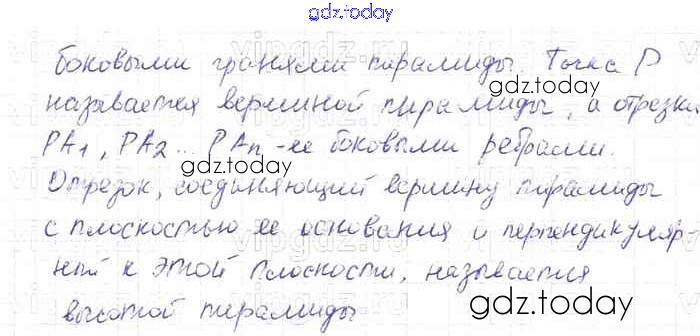 gdz.today
боковыми гранями пирамиды. Точка P
gdz.today
называется вершиной пирамиды, а отрезки
PA1, PA2 ... PAn - ее боковыми ребрами.
gdz.today
Отрезок, соединяющий вершину пирамиды
gdz.today
с плоскостью ее основания и перпендикуляр
ный к этой плоскости, называется
высотой пирамиды
gdz.today